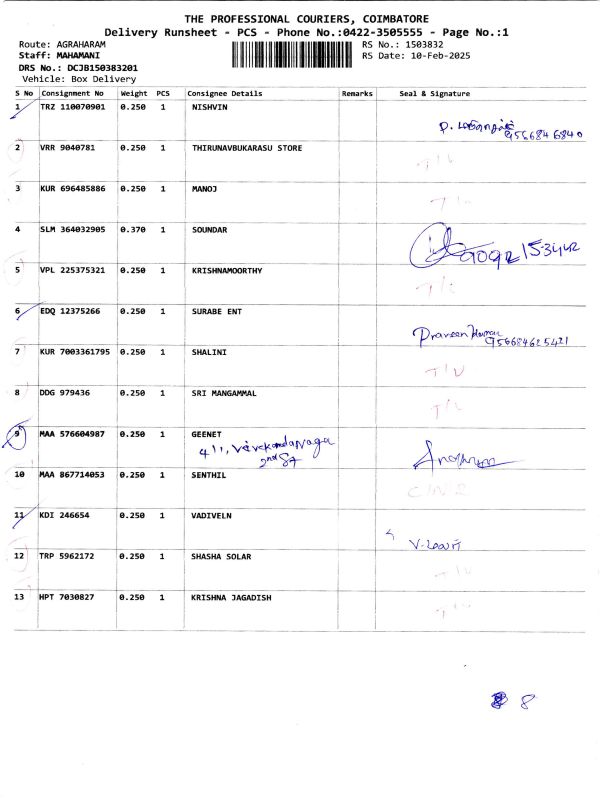 THE PROFESSIONAL COURIERS, COIMBATORE
Delivery Runsheet - PCS - Phone No.:0422-3505555 - Page No.:1
Route: AGRAHARAM RS No.: 1503832
Staff: MAHAMANI RS Date: 10-Feb-2025
DRS No.: DCJB150383201
Vehicle: Box Delivery
S No Consignment No Weight PCS Consignee Details Remarks Seal & Signature
1 TRZ 110070901 0.250 1 NISHVIN
9566846840
2 VRR 9040781 0.250 1 THIRUNAVBUKARASU STORE
3 KUR 696485886 0.250 1 MANOJ
4 SLM 364032905 0.370 1 SOUNDAR
5 VPL 225375321 0.250 1 KRISHNAMOORTHY
6 EDQ 12375266 0.250 1 SURABE ENT
Praveen Kumar
7 KUR 7003361795 0.250 1 SHALINI
8 DDG 979436 0.250 1 SRI MANGAMMAL
9 MAA 576604987 0.250 1 GEENET
411,
2nd St
10 MAA 867714053 0.250 1 SENTHIL
11 KDI 246654 0.250 1 VADIVELN
12 TRP 5962172 0.250 1 SHASHA SOLAR
13 HPT 7030827 0.250 1 KRISHNA JAGADISH
8